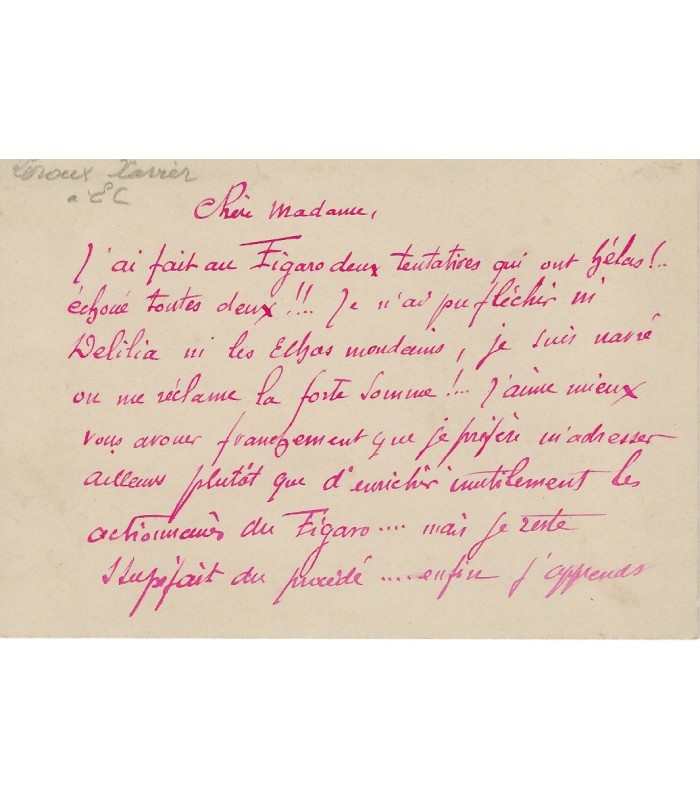 Leroux Xavier
a E C
Chère Madame,
J'ai fait au Figaro deux tentatives qui ont hélas!..
échoué toutes deux!!.. Je n'ai pu fléchir ni
Delilia ni les Echos mondains, je suis navré
on me réclame la forte somme!... J'aime mieux
vous avouer franchement que je préfère m'adresser
ailleurs plutôt que d'enrichir inutilement les
actionnaires du Figaro.... mais je reste
stupéfait du procédé .... enfin j'apprends